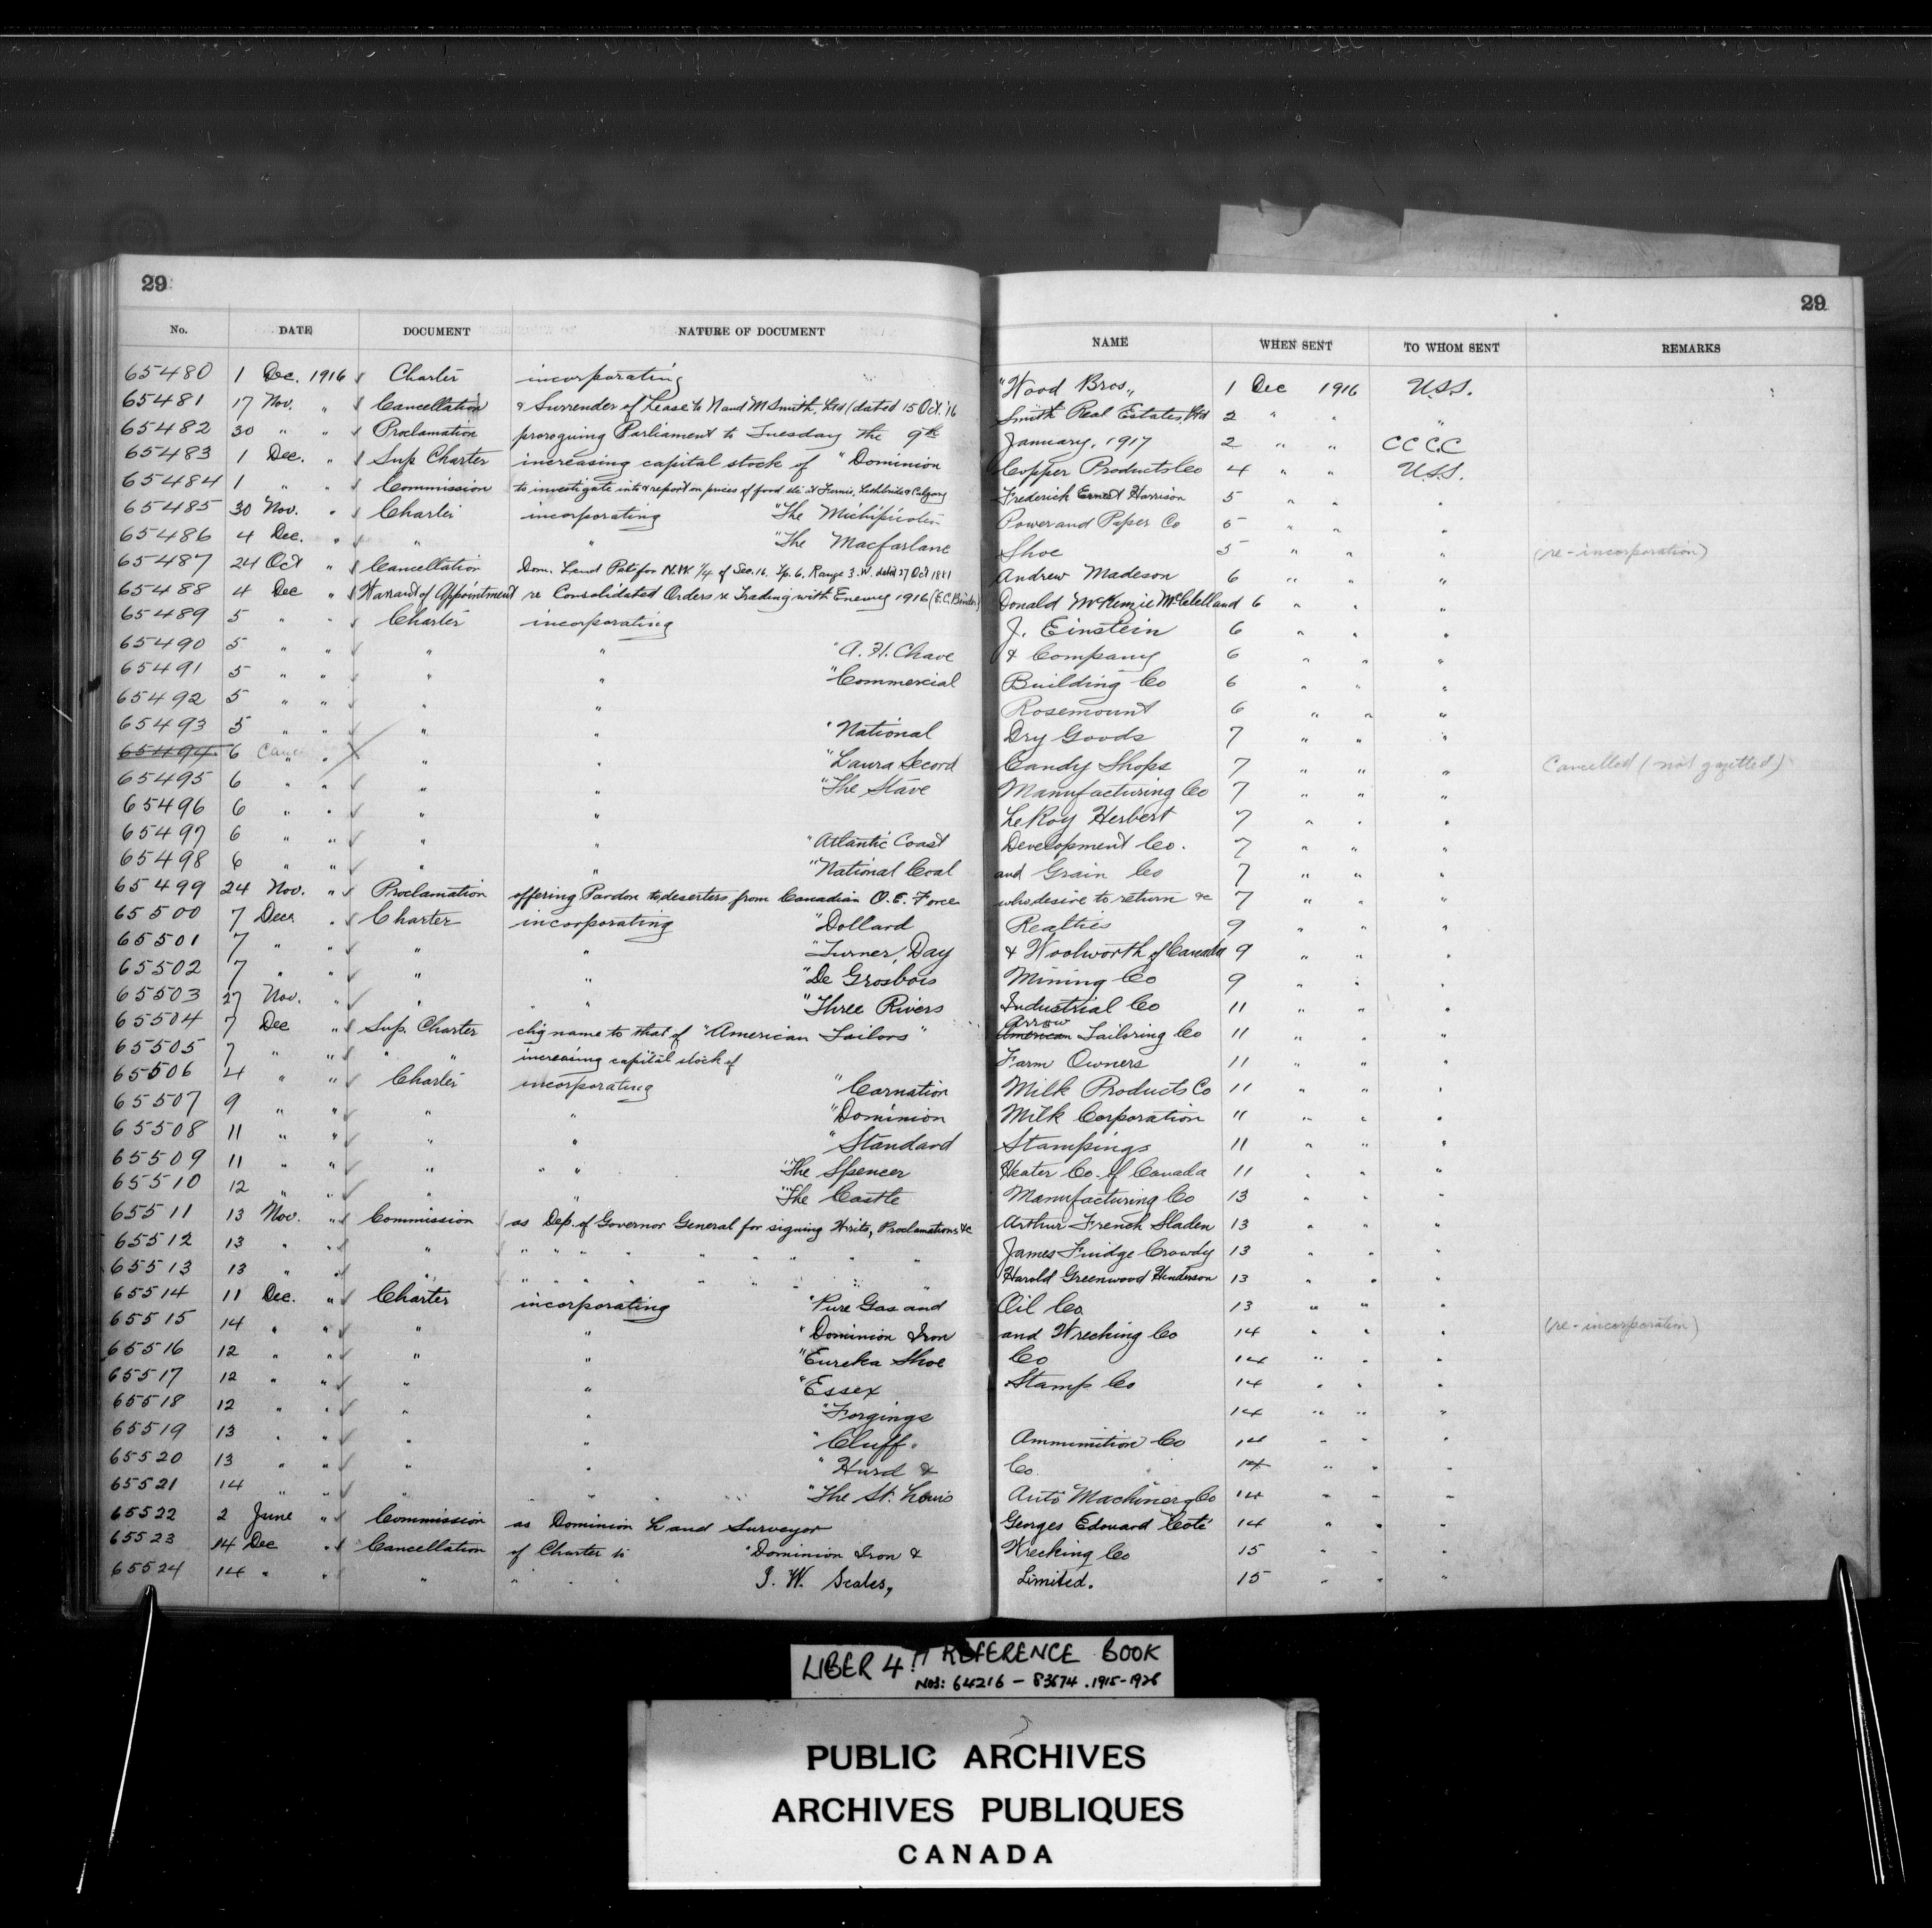 29
29
No. DATE DOCUMENT NATURE OF DOCUMENT NAME WHEN SENT TO WHOM SENT REMARKS
65480 1 Dec. 1916 Charter incorporating "Wood Bros., 1 Dec 1916 U.S.S.
65481 17 Nov. " Cancellation & Surrender of Lease to N and M Smith, Ltd (dated 15 Oct. '16 Smith Real Estates, Ltd 2 " " "
65482 30 " " Proclamation proroguing Parliament to Tuesday the 9th January, 1917 2 " " CCCC
65483 1 Dec. " Sup Charter increasing capital stock of "Dominion Copper Products Co 4 " " U.S.S.
65484 1 " " Commission to investigate into & report on prices of food etc at Fernie, Lethbridge & Calgary Frederick Ernest Harrison 5 " " "
65485 30 Nov. " Charter incorporating "The Michipicoten Power and Paper Co 5 " " "
65486 4 Dec. " " " "The Macfarlane Shoe 5 " " " (re-incorporation)
65487 24 Oct " Cancellation Dom. Land Pat. for N.W. 1/4 of Sec. 16. Tp. 6, Range 3. W. dated 27 Oct 1881 Andrew Madeson 6 " " "
65488 4 Dec " Warrant of Appointment re Consolidated Orders re Trading with Enemy 1916 (E.C. Binder) Donald McKenzie McClelland 6 " " "
65489 5 " " Charter incorporating J. Einstein 6 " " "
65490 5 " " " " "A. H. Chave & Company 6 " " "
65491 5 " " " " "Commercial Building Co 6 " " "
65492 5 " " " " Rosemount 6 " " "
65493 5 " " " " "National Dry Goods 7 " " "
65494 6 " " " " "Laura Secord Candy Shops 7 " " " Cancelled (not gazetted)
65495 6 " " " " "The Stave Manufacturing Co 7 " " "
65496 6 " " " " LeRoy Herbert 7 " " "
65497 6 " " " " "Atlantic Coast Development Co. 7 " " "
65498 6 " " " " "National Coal and Grain Co 7 " " "
65499 24 Nov. " Proclamation offering Pardon to deserters from Canadian O.E. Force who desire to return &c 7 " " "
65500 7 Dec " Charter incorporating "Dollard Realties 9 " " "
65501 7 " " " " "Turner, Day & Woolworth of Canada 9 " " "
65502 7 " " " " "De Grosbois Mining Co 9 " " "
65503 27 Nov. " " " "Three Rivers Industrial Co 11 " " "
65504 7 Dec " Sup. Charter chg name to that of "American Tailors" American Arrow Tailoring Co 11 " " "
65505 7 " " " " increasing capital stock of Farm Owners 11 " " "
65506 4 " " Charter incorporating "Carnation Milk Products Co 11 " " "
65507 9 " " " " "Dominion Milk Corporation 11 " " "
65508 11 " " " " "Standard Stampings 11 " " "
65509 11 " " " " "The Spencer Heater Co. of Canada 11 " " "
65510 12 " " " " "The Castle Manufacturing Co 13 " " "
65511 13 Nov. " Commission as Dep. of Governor General for signing Writs, Proclamations &c Arthur French Sladen 13 " " "
65512 13 " " " " " " " " " " " " James Fuidge Crowdy 13 " " "
65513 13 " " " " " " " " " " " Harold Greenwood Henderson 13 " " "
65514 11 Dec. " Charter incorporating "Pure Gas and Oil Co 13 " " "
65515 14 " " " " "Dominion Iron and Wrecking Co 14 " " " (re-incorporation)
65516 12 " " " " "Eureka Shoe Co 14 " " "
65517 12 " " " " "Essex Stamp Co 14 " " "
65518 12 " " " " "Forgings 14 " " "
65519 13 " " " " "Cluff Ammunition Co 14 " " "
65520 13 " " " " "Hurd & Co. 14 " " "
65521 14 " " " " "The St. Louis Auto Machinery Co 14 " " "
65522 2 June " Commission as Dominion Land Surveyor Georges Edouard Coté 14 " " "
65523 14 Dec " Cancellation of Charter to "Dominion Iron & Wrecking Co 15 " " "
65524 14 " " " " " " J. W. Scales, Limited. 15 " " "
LIBER 4 REFERENCE BOOK
NOS: 64216 – 83674 . 1915-1928
PUBLIC ARCHIVES
ARCHIVES PUBLIQUES
CANADA